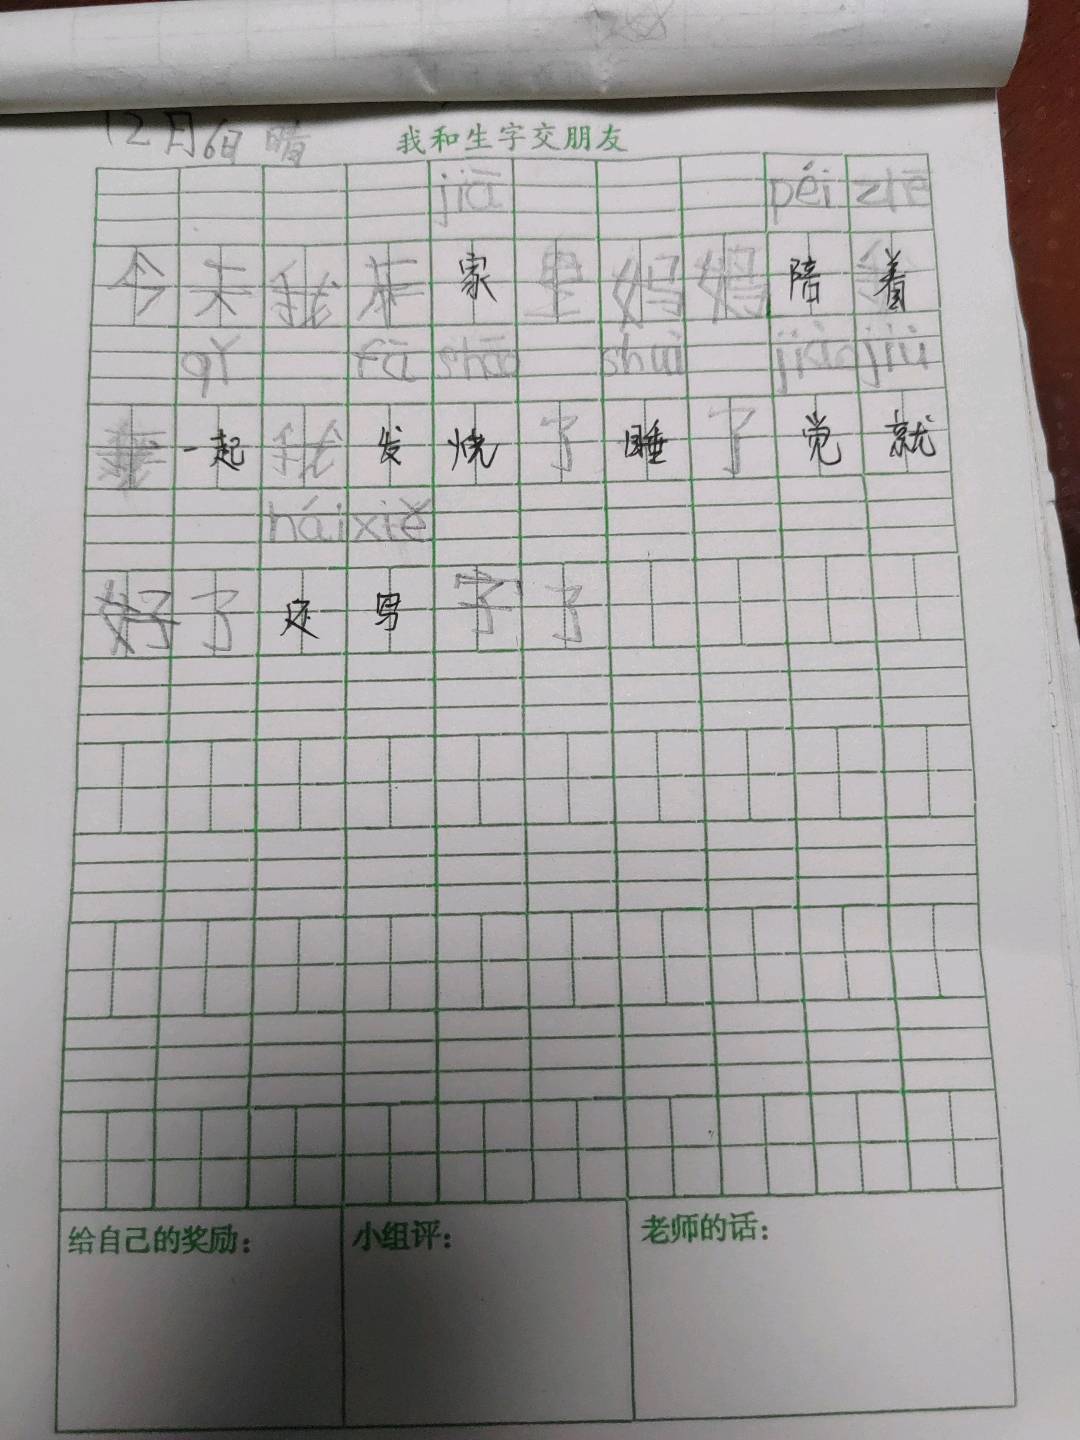 12月6日 晴
我和生字交朋友
jiā péi zhē
今天我在家里妈妈陪着
qǐ fā shāo shuì jiào jiù
我一起我发烧了睡了觉就
hái xiě
好了还写字了
给自己的奖励：
小组评：
老师的话：